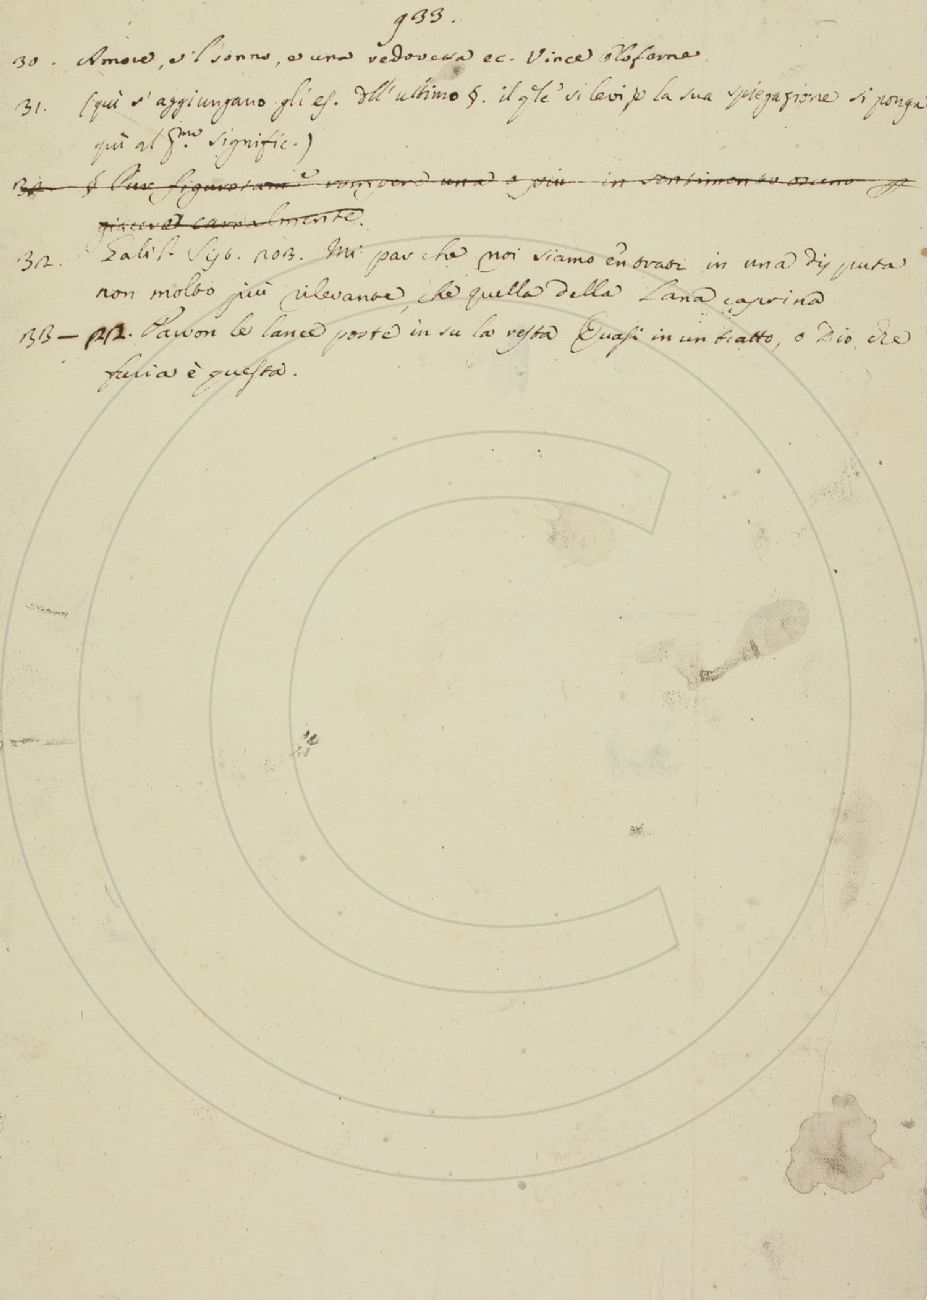 933.
30. Amore, e 'l sonno, e una vedovetta ec. Vince Oloferne.
31. (quì s'aggiungano gli es. dll'ultimo §. il qle si levi, e la sua spiegazione si ponga
quì al pmo signific.)
32. § Pur figuratame rompere una o più in sentimento osceno
giacere carnalmente.
32. Galil. Sist. 203. Mi par che noi siamo entrati in una disputa
non molto più rilevante, che quella della Lana caprina
33 - 22. Furon le lance poste in su la resta Quasi in un tratto, o Dio, che
furia è questa.